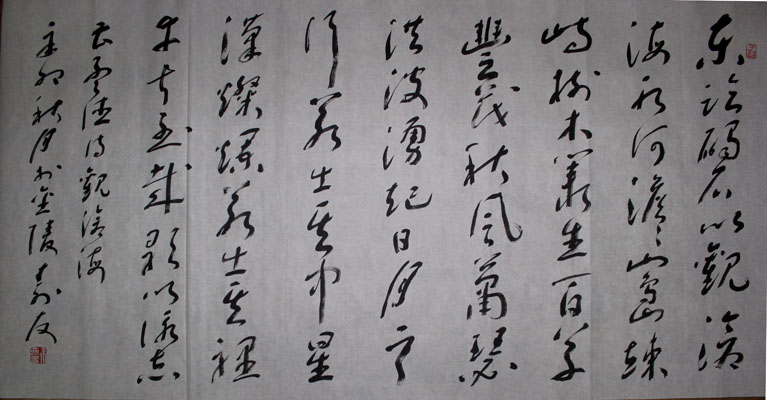 東臨碣石以觀滄
海水何澹〻山島竦
峙樹木叢生百草
豐茂秋風蕭瑟
洪波湧起日月之
行若出其中星
漢燦爛若出其裡
幸甚至哉歌以詠志
曹孟德詩觀滄海
辛卯秋月於金陵